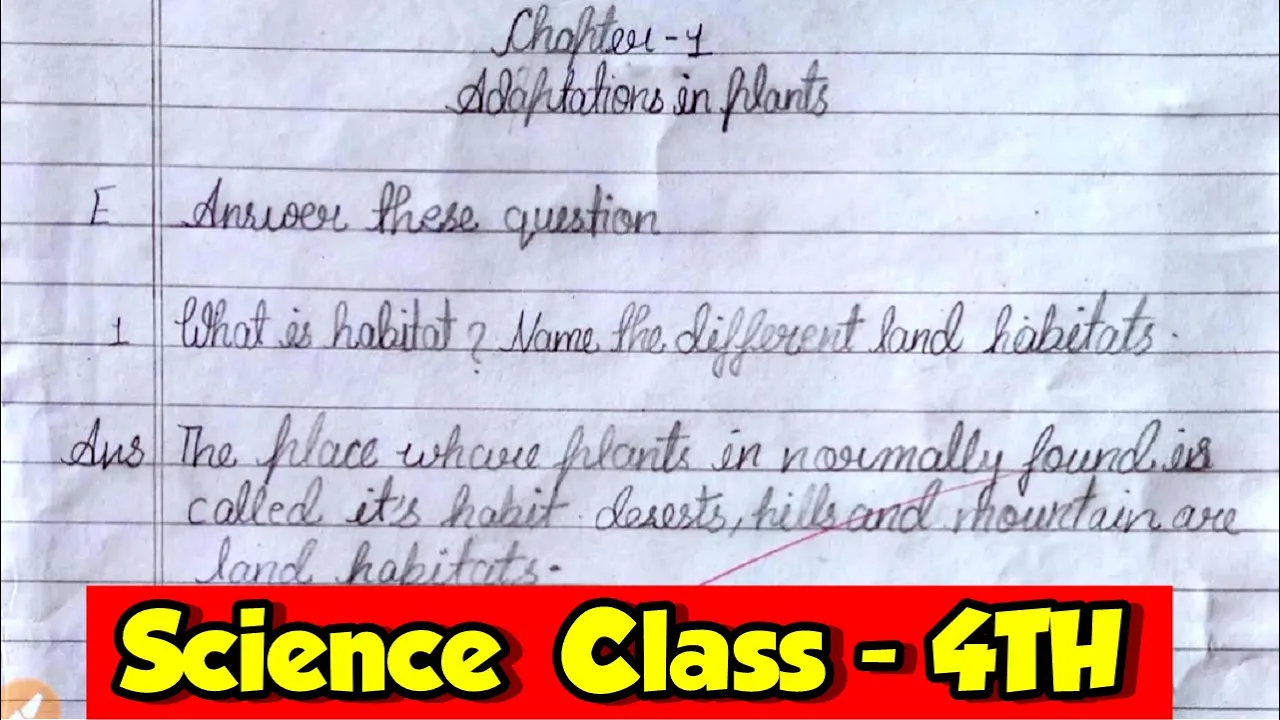 Chapter-1
Adaptations in plants
E Answer these question
1 What is habitat? Name the different land habitats.
Ans The place whare plants in normally found is
called it's habit. deserts, hills and mountain are
land habitats.
Science Class - 4TH